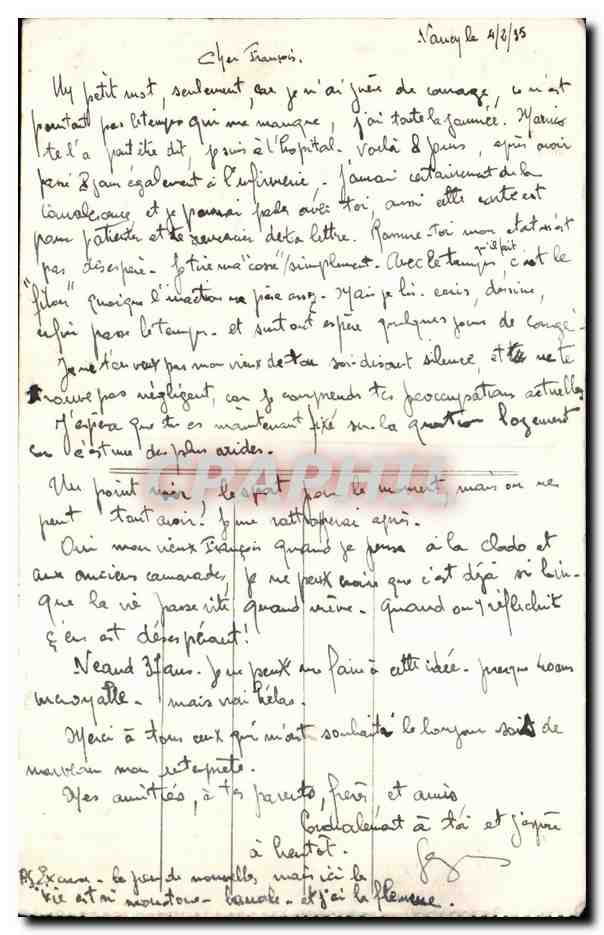 Nancy le 4/2/35
Cher François.
Un petit mot, seulement, car je n'ai guère de courage, ce n'est
pourtant pas le temps qui me manque, j'ai toute la journée.
te l'a peut être dit, je suis à l'hopital. Voilà 8 jours, après avoir
passé 8 jours également à l'infirmerie. J'aurai certainement de la
convalescence et je pourrai parler avec toi, aussi cette carte est
pour patienter et te remercier de ta lettre. Rassure-toi mon état n'est
pas désespéré. Je tire ma "cosse" simplement. Avec le temps qu'il fait, c'est le
"filon" quoique l'inaction me pèse assez. Mais je lis, écris, dessine,
enfin passe le temps. et surtout espère quelques jours de congé.
Je ne t'en veux pas mon vieux de ton soi-disant silence, et ne te
trouve pas négligent, car je comprends tes préoccupations actuelles
J'espère que tu es maintenant fixé sur la question logement
car c'est une des plus arides.
CPAPHIL
Un point noir, le sport pour le moment, mais on ne
peut tout avoir! Je me rattraperai après.
Oui mon vieux François quand je pense à la clado et
aux anciens camarades, je ne peux croire que c'est déjà si loin.
que la vie passe vite quand même. Quand on y réfléchit
ç'en est désespérant!
37 ans. Je ne peux me faire à cette idée. presque 40 ans
incroyable. mais vrai hélas.
Merci à tous ceux qui m'ont souhaité le bonjour sois de
nouveau mon interprète.
Mes amitiés, à tes parents, frères et amis
Cordialement à toi et j'espère
à bientôt.
PS Excuse le peu de nouvelles mais ici la
vie est si monotone - banale - et j'ai la flemme.